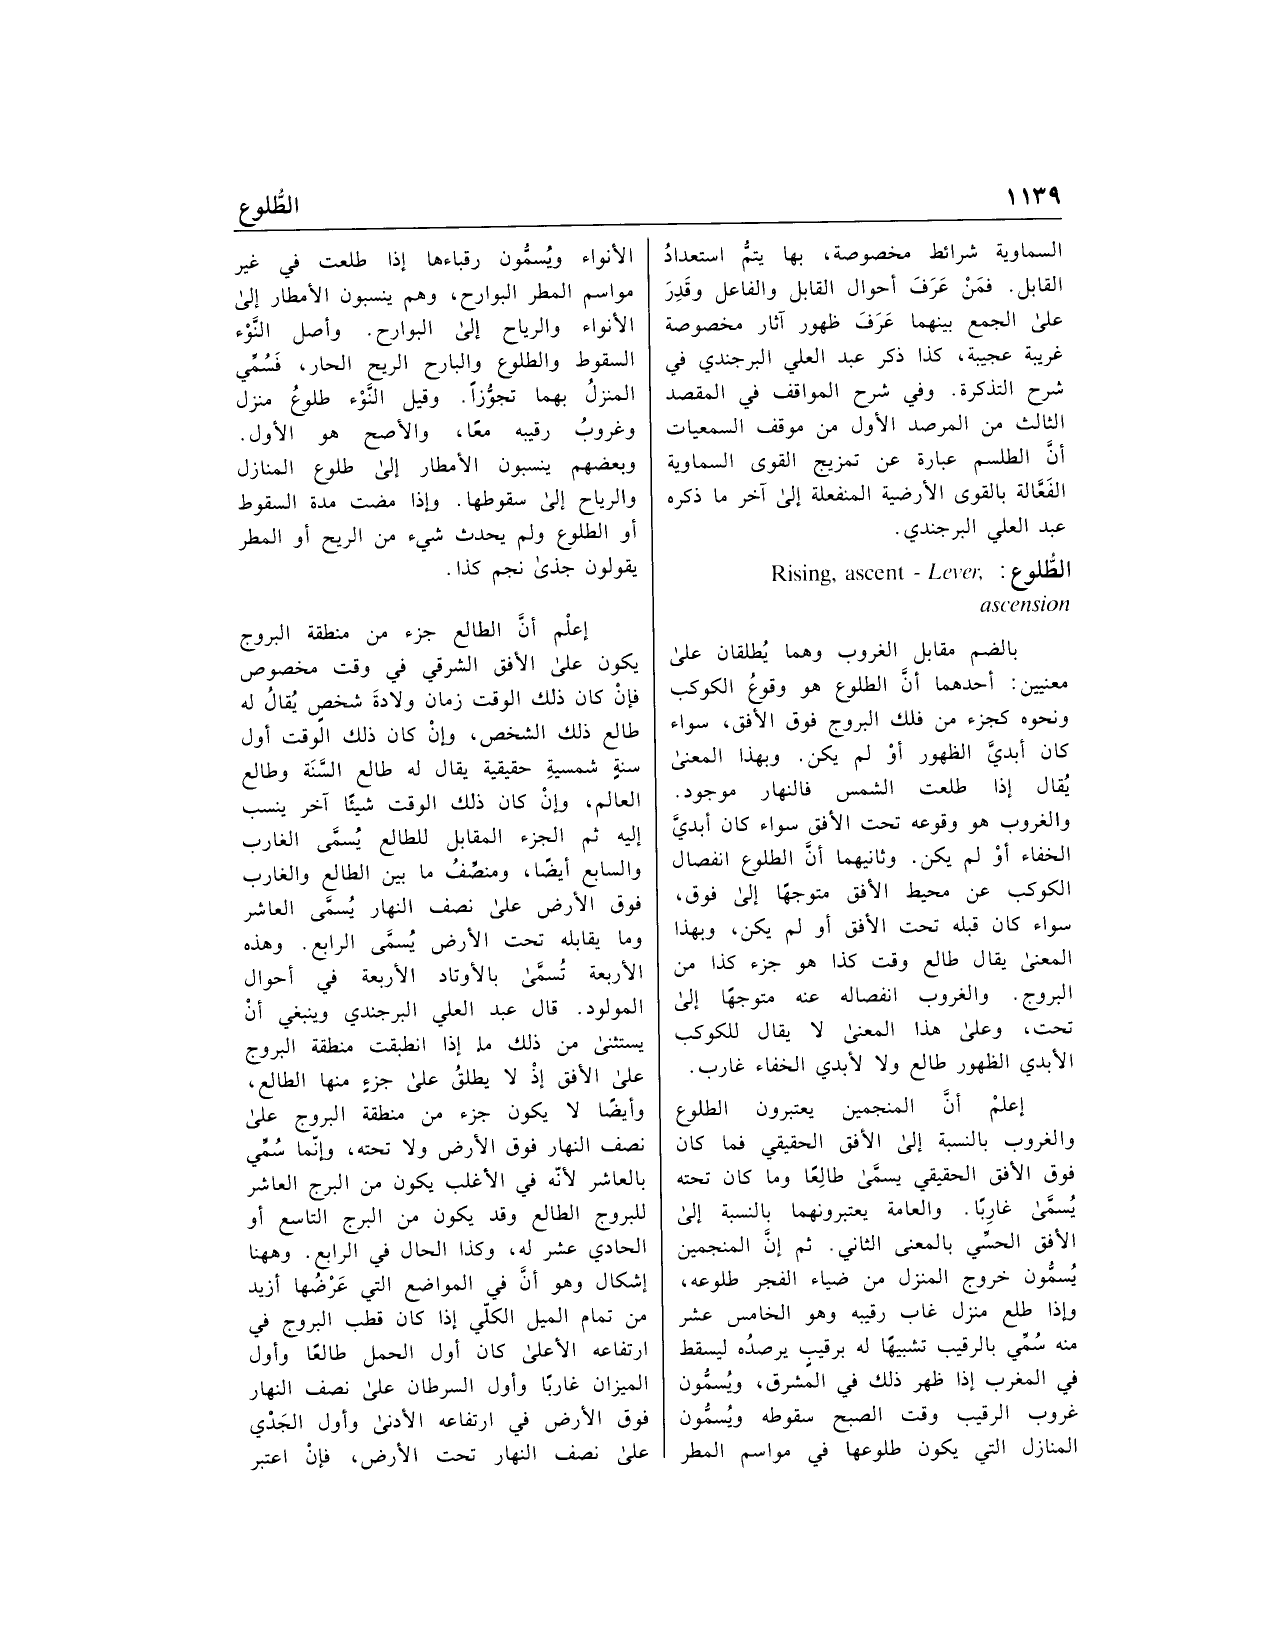 ١١٣٩
الطُّلوع
السماوية شرائط مخصوصة، بها يتمُّ استعدادُ
القابل. فمَنْ عَرَفَ أحوال القابل والفاعل وقَدِرَ
علىٰ الجمع بينهما عَرَفَ ظهور آثار مخصوصة
غريبة عجيبة، كذا ذكر عبد العلي البرجندي في
شرح التذكرة. وفي شرح المواقف في المقصد
الثالث من المرصد الأول من موقف السمعيات
أنَّ الطلسم عبارة عن تمزيج القوى السماوية
الفَعَّالة بالقوى الأرضية المنفعلة إلىٰ آخر ما ذكره
عبد العلي البرجندي.
الطُّلوع: Rising, ascent - Lever,
ascension
بالضم مقابل الغروب وهما يُطلقان علىٰ
معنيين: أحدهما أنَّ الطلوع هو وقوعُ الكوكب
ونحوه كجزء من فلك البروج فوق الأفق، سواء
كان أبديَّ الظهور أوْ لم يكن. وبهذا المعنىٰ
يُقال إذا طلعت الشمس فالنهار موجود.
والغروب هو وقوعه تحت الأفق سواء كان أبديَّ
الخفاء أوْ لم يكن. وثانيهما أنَّ الطلوع انفصال
الكوكب عن محيط الأفق متوجهًا إلىٰ فوق،
سواء كان قبله تحت الأفق أو لم يكن، وبهذا
المعنىٰ يقال طالع وقت كذا هو جزء كذا من
البروج. والغروب انفصاله عنه متوجهًا إلىٰ
تحت، وعلىٰ هذا المعنىٰ لا يقال للكوكب
الأبدي الظهور طالع ولا لأبدي الخفاء غارب.
إعلمْ أنَّ المنجمين يعتبرون الطلوع
والغروب بالنسبة إلىٰ الأفق الحقيقي فما كان
فوق الأفق الحقيقي يسمَّىٰ طالِعًا وما كان تحته
يُسمَّىٰ غارِبًا. والعامة يعتبرونهما بالنسبة إلىٰ
الأفق الحسِّي بالمعنى الثاني. ثم إنَّ المنجمين
يُسمُّون خروج المنزل من ضياء الفجر طلوعه،
وإذا طلع منزل غاب رقيبه وهو الخامس عشر
منه سُمِّي بالرقيب تشبيهًا له برقيبٍ يرصدُه ليسقط
في المغرب إذا ظهر ذلك في المشرق، ويُسمُّون
غروب الرقيب وقت الصبح سقوطه ويُسمُّون
المنازل التي يكون طلوعها في مواسم المطر
الأنواء ويُسمُّون رقباءها إذا طلعت في غير
مواسم المطر البوارح، وهم ينسبون الأمطار إلىٰ
الأنواء والرياح إلىٰ البوارح. وأصل النَّوْء
السقوط والطلوع والبارح الريح الحار، فَسُمِّي
المنزلُ بهما تجوُّزاً. وقيل النَّوْء طلوعُ منزل
وغروبُ رقيبه معًا، والأصح هو الأول.
وبعضهم ينسبون الأمطار إلىٰ طلوع المنازل
والرياح إلىٰ سقوطها. وإذا مضت مدة السقوط
أو الطلوع ولم يحدث شيء من الريح أو المطر
يقولون جذىٰ نجم كذا.
إعلْم أنَّ الطالع جزء من منطقة البروج
يكون علىٰ الأفق الشرقي في وقت مخصوص
فإنْ كان ذلك الوقت زمان ولادةَ شخصٍ يُقالُ له
طالع ذلك الشخص، وإنْ كان ذلك الوقت أول
سنةٍ شمسيةِ حقيقية يقال له طالع السَّنَة وطالع
العالم، وإنْ كان ذلك الوقت شيئًا آخر ينسب
إليه ثم الجزء المقابل للطالع يُسمَّى الغارب
والسابع أيضًا، ومنصِّفُ ما بين الطالع والغارب
فوق الأرض علىٰ نصف النهار يُسمَّى العاشر
وما يقابله تحت الأرض يُسمَّى الرابع. وهذه
الأربعة تُسمَّىٰ بالأوتاد الأربعة في أحوال
المولود. قال عبد العلي البرجندي وينبغي أنْ
يستثنىٰ من ذلك ما إذا انطبقت منطقة البروج
علىٰ الأفق إذْ لا يطلقُ علىٰ جزءٍ منها الطالع،
وأيضًا لا يكون جزء من منطقة البروج علىٰ
نصف النهار فوق الأرض ولا تحته، وإنّما سُمِّي
بالعاشر لأنّه في الأغلب يكون من البرج العاشر
للبروج الطالع وقد يكون من البرج التاسع أو
الحادي عشر له، وكذا الحال في الرابع. وههنا
إشكال وهو أنَّ في المواضع التي عَرْضُها أزيد
من تمام الميل الكلّي إذا كان قطب البروج في
ارتفاعه الأعلىٰ كان أول الحمل طالعًا وأول
الميزان غاربًا وأول السرطان علىٰ نصف النهار
فوق الأرض في ارتفاعه الأدنىٰ وأول الجَدْي
علىٰ نصف النهار تحت الأرض، فإنْ اعتبر